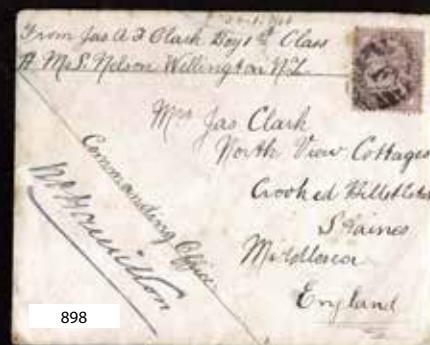 From Jas A F Clark Boy 1st Class
H. M. S. Nelson Wellington N Z
Mrs Jas Clark
North View Cottages
Crooked Billet
Staines
Middlesex
England
Commanding Officer
898